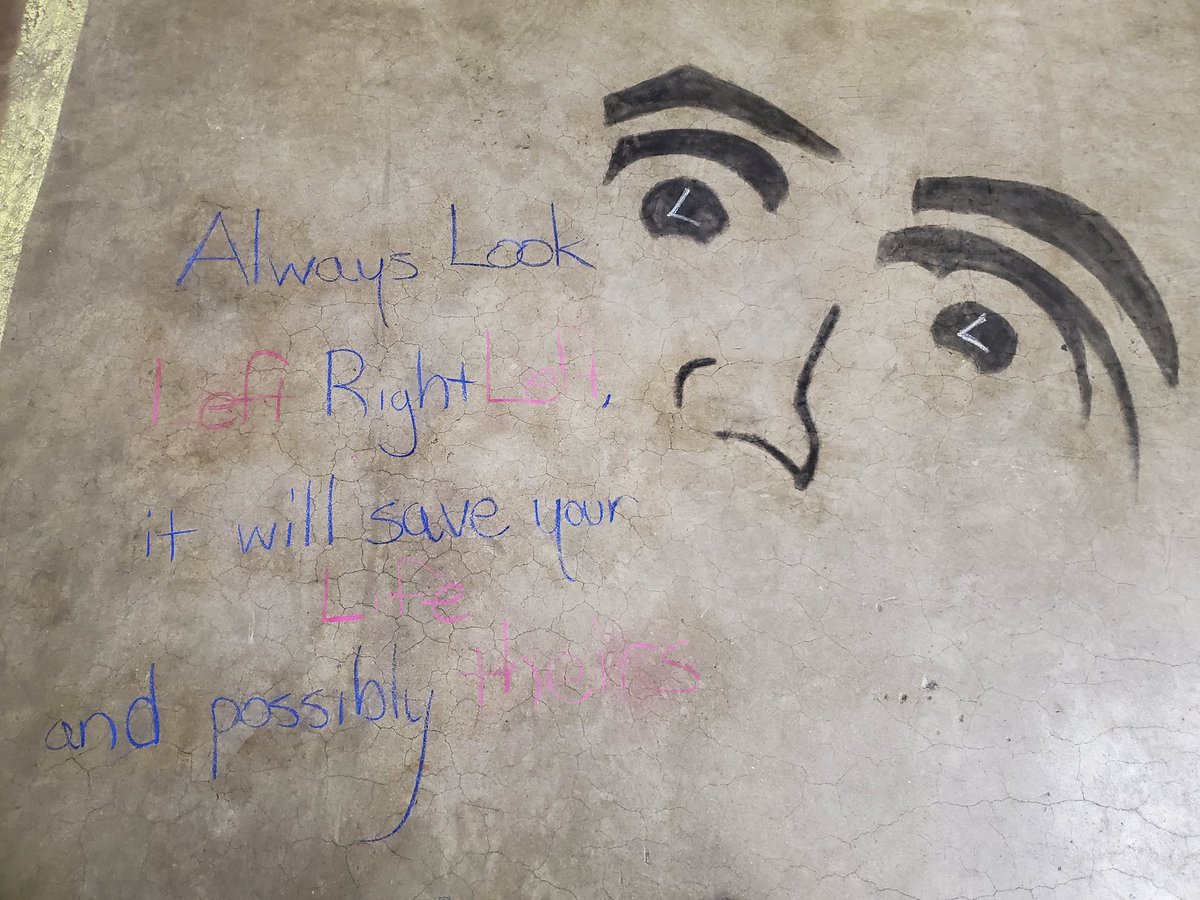 Always Look
Left Right Left,
it will save your
Life
and possibly theirs